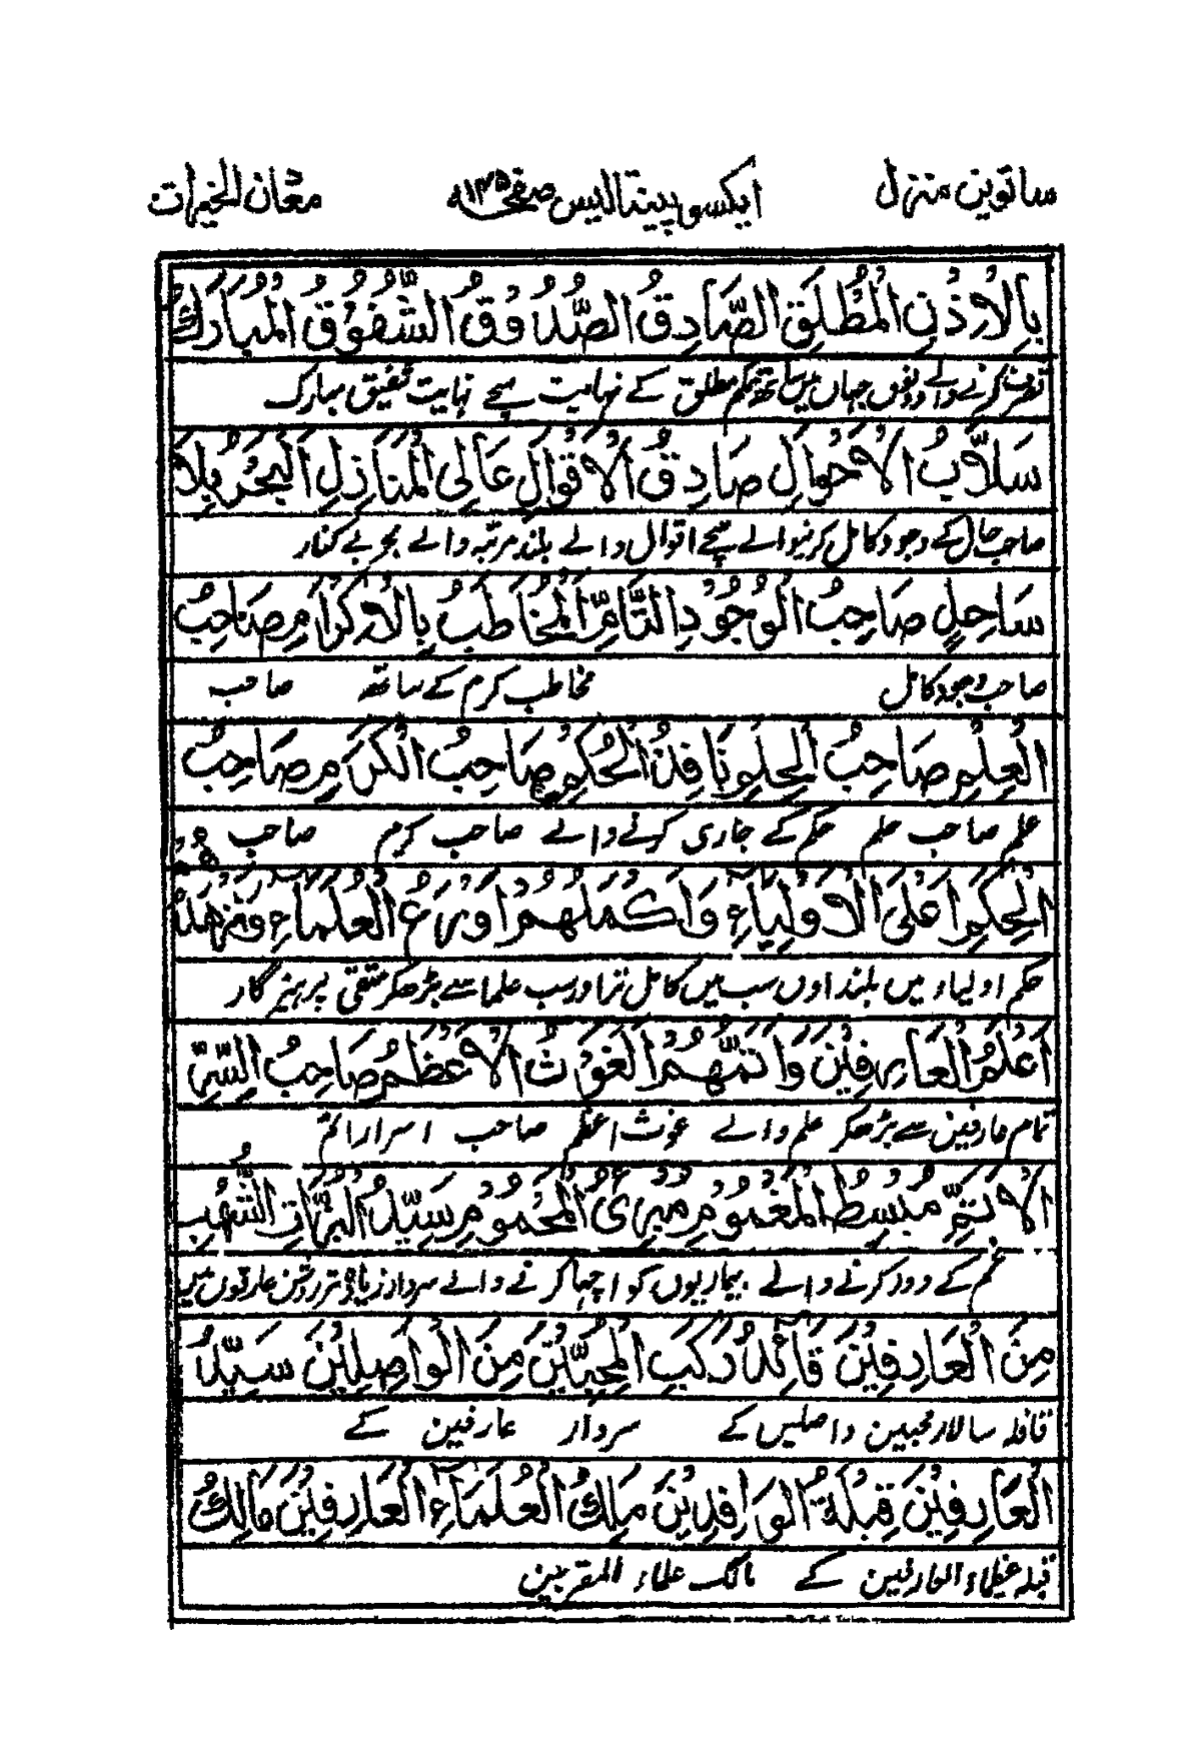 ساتویں منزل ایکسو پینتالیس صفحہ ۱۴۵ مغان الخیرات
بِالْاِذْنِ الْمُطْلَقِ الصَّادِقُ الصَّدُوْقُ الشَّفُوْقُ الْمُبَارَكُ
تصرف کرنے والے دونوں جہاں میں ساتھ حکم مطلق کے نہایت سچے نہایت شفیق مبارک
سَلَّابُ الْاَحْوَالِ صَادِقُ الْاَقْوَالِ عَالِى الْمَنَازِلِ الْبَحْرُ بِلَا
صاحب حال کے وجود کامل کرنیوالے سچے اقوال والے بلند مرتبہ والے بحر بے کنار
سَاحِلٍ صَاحِبُ الْوُجُوْدِ التَّامِّ الْمُخَاطَبُ بِالْاِكْرَامِ صَاحِبُ
صاحب وجود کامل مخاطب کرم کے ساتھ صاحب
الْعِلْمِ صَاحِبُ الْحِلْمِ نَافِذُ الْحُكْمِ صَاحِبُ الْكَرَمِ صَاحِبُ
علم صاحب حلم حکم کے جاری کرنے والے صاحب کرم صاحب
الْحِكَمِ اَعْلَى الْاَوْلِيَاءِ وَاَكْمَلُهُمْ اَوْرَعُ الْعُلَمَاءِ وَ
حکم اولیاء میں بلند اوں سب میں کامل تر اور سب علما سے بڑھکر متقی پرہیز گار
اَعْلَمُ الْعَارِفِيْنَ وَاَتَمُّهُمْ الْغَوْثُ الْاَعْظَمُ صَاحِبُ السِّرِّ
تمام عارفین سے بڑھکر علم والے غوث اعظم صاحب اسرار اتم
الْاَتَمِّ مُبْسِطُ الْمَغْمُوْمِ مُبْرِئُ الْمَحْمُوْمِ سَيِّدُ الْبُزَّاقِ الشُّهْبِ
غم کے دور کرنے والے بیماریوں کو اچھا کرنے والے سردار زیادہ تر روشن عارفوں میں
مِنَ الْعَارِفِيْنَ قَائِدُ رَكْبِ الْمُحِبِّيْنَ مِنَ الْوَاصِلِيْنَ سَيِّدُ
قافلہ سالار محبین واصلیں کے سردار عارفین کے
الْعَارِفِيْنَ قِبْلَةُ الْوَافِدِيْنَ مَلِكُ الْعُلَمَاءِ الْعَارِفِيْنَ مَالِكُ
قبلہ عظماء العارفین کے مالک علماء المقربین